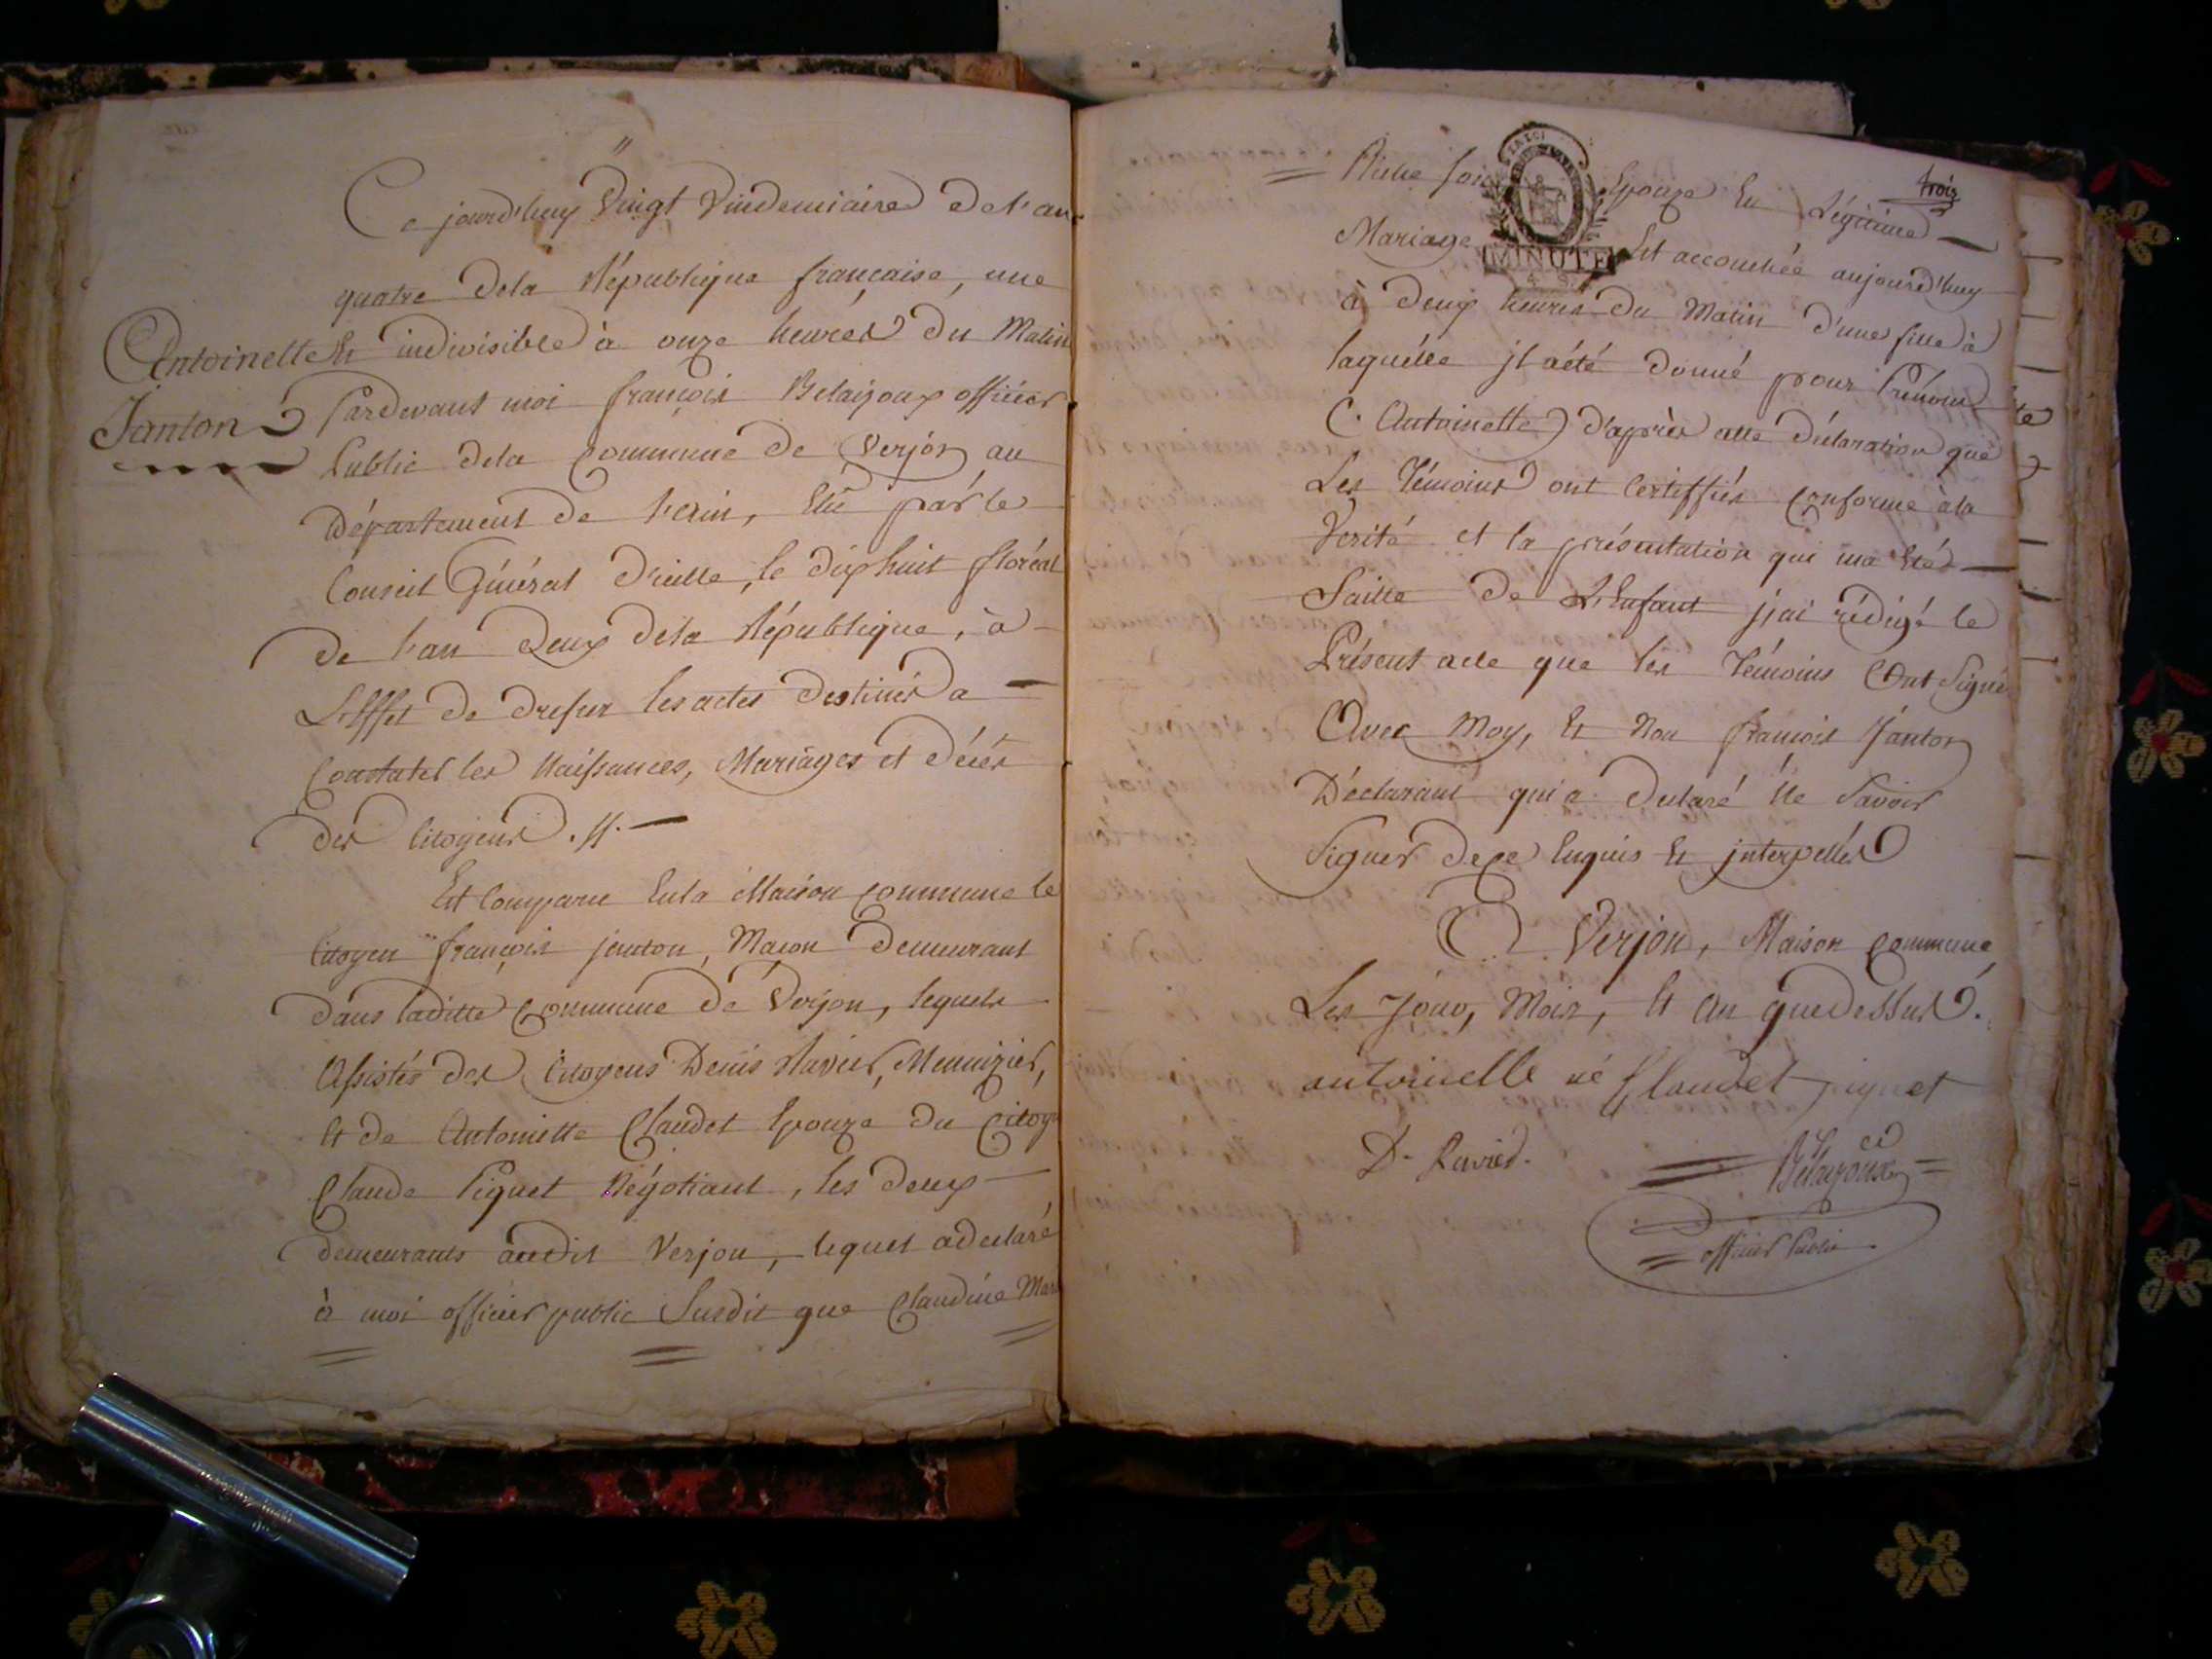 Ce jourd'huy Vingt Vindemiaire de l'an
quatre dela République française, une
Et indivisible à onze heures du Matin
Antoinette
Janton
Pardevant moi françois Belaysoux officier
Public dela Commune de Verjon au
Département de l'ain, Elû par le
Conseil Général d'icelle, le dix huit floréal
de l'an deux dela République, à
L'Effet de dresser les actes destinés a
Constater les Naissances, Mariages et décès
des Citoyens .//.
Est Comparu En la Maison Commune le
Citoyen françois janton, Maçon demeurant
dans laditte Commune de Verjon, lequels
Assistés des Citoyens Denis Ravier, Menuizier,
Et de Antoinette Claudet Epouze du Citoy
Claude Piquet Négotiant, les deux
demeurants audit Verjon, lequel a déclaré
à moi officier public Susdit que Claudine
trois
Epouze En Légitime
Mariage
MINUTE
Est accouchée aujourd'huy
à deux heures du Matin d'une fille à
laquélle jl a été donné pour Prénom
Antoinette d'après cette déclaration que
Les Témoins ont Certiffiés Conforme à la
Verité et la présentation qui ma Eté
Faitte de L'Enfant j'ai rédigé le
Présent acte que les Témoins Ont Signé
Avec Moy, Et Non françois Janton
Déclarant qui a déclaré Ne Savoir
Signer de ce Enquis Et jnterpellés
A Verjon, Maison Commune
Les Jour, Mois, Et An que dessus.
antoinelle né Claudet piquet
D. Ravier.
Belaysoux
officier Public